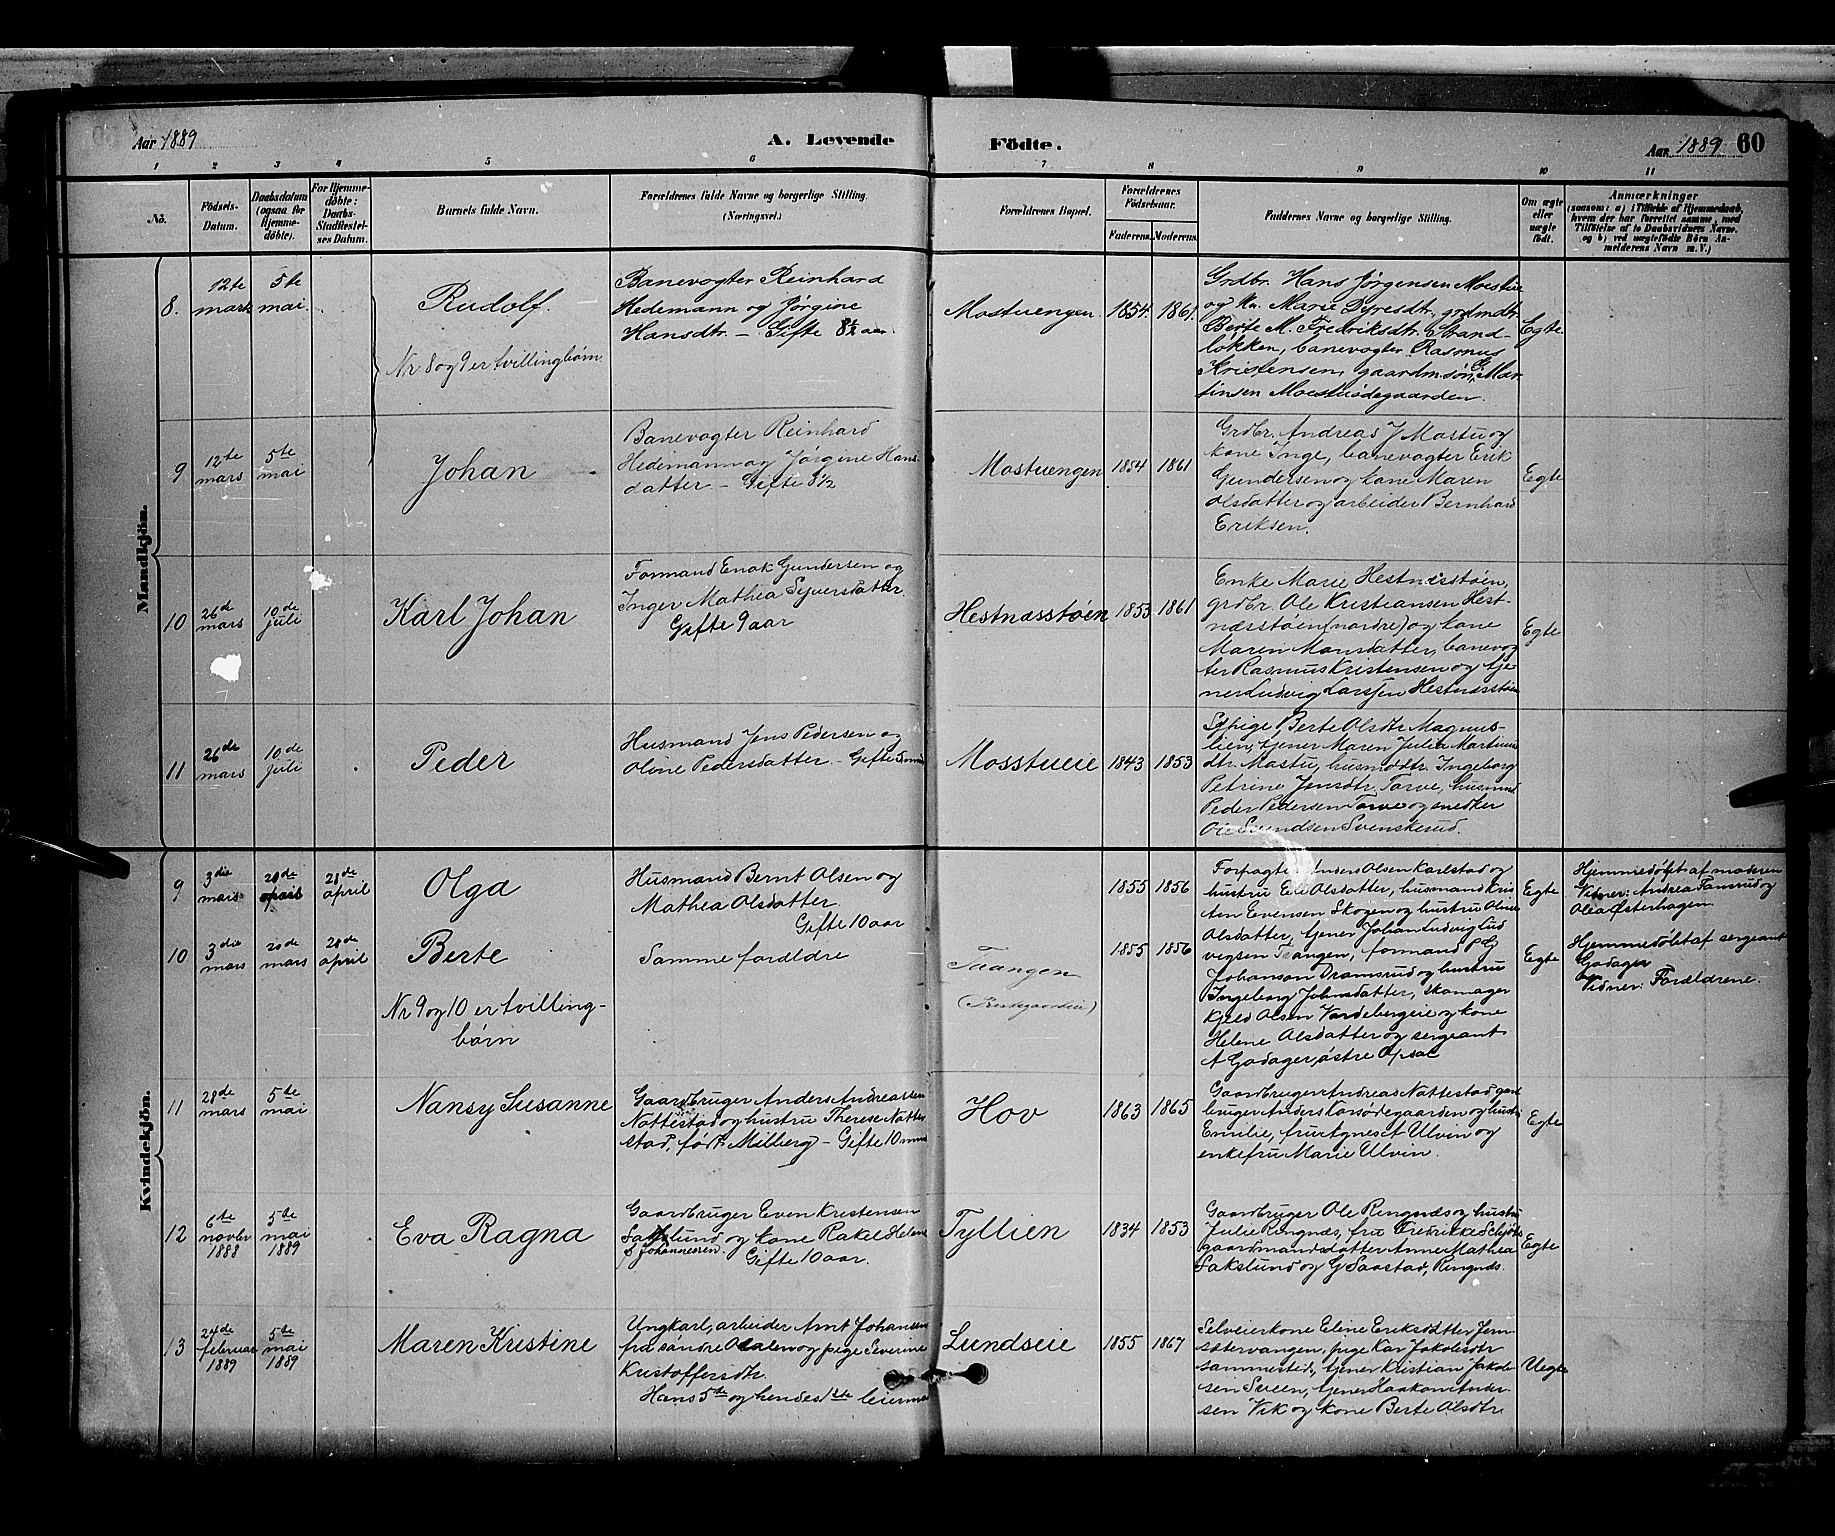 Aar 1889
A. Levende
Födte.
Aar 1889 60
1 2 3 4 5 6 7 8 9 10 11
No.
Födsels-
Datum.
Daabsdatum
(ogsaa for
Hjemme-
döbte).
For Hjemme-
döbte:
Daabs-
Stadfæstel-
ses Datum.
Barnets fulde Navn.
Forældrenes fulde Navne og borgerlige Stilling.
(Næringsvei.)
Forældrenes Bopæl.
Forældrenes
Födselsaar.
Faderens. Moderens.
Faddernes Navne og borgerlige Stilling.
Om ægte
eller
uægte
födt.
Anmærkninger
(saasom: a) i Tilfælde af Hjemmedaab,
hvem der har forrettet samme, med
Tilföielse af to Daabsvidners Navne.
og b) ved uægtefödte Börn An-
melderens Navn m. V.)
Mandkjön.
8.
12te
mars
5te
mai
Rudolf.
Nr 8 og 9 er tvillingbørn
Banevogter Reinhard
Hedemann og Jørgine
Hansdtr. – Gifte 8½ aar
Mostuengen. 1854. 1861.
Grdbr. Hans Jørgensen Moestue
og Kn. Marie Dyresdtr. grdmdtr.
Berte M. Fredriksdtr. Strand-
løkken, banevogter Rasmus
Kristensen, gaardm.søn G. Mar-
tinsen Moestuødegaarden.
Egte
9
12te
mars
5te
mai
Johan
Banevogter Reinhard
Hedemann og Jørgine Hans-
datter – Gifte 8½
Mostuengen 1854 1861
Grdbr. Andreas J Mostu og
kone Inge, banevogter Erik
Gundersen og kone Maren
Olsdatter og arbeider Bernhard
Eriksen.
Egte
10
26de
mars
10de
juli
Karl Johan
Formand Enok Gundersen og
Inger Mathea Syversdatter
Gifte 9 aar
Hestnæsstøen 1853 1861
Enke Marie Hestnæsstøen,
grdbr. Ole Kristiansen Hest-
næsstøen (nordre) og kone
Maren Monsdatter, banevog
ter Rasmus Kristensen og tje
ner Ludvig Larssen Hestnæsstøen
Egte
11
26de
mars
10de
juli
Peder
Husmand Jens Pedersen og
Oline Pedersdatter – Gifte 5 mnd
Mosstueie 1843 1853
Sypige Berte Olsdtr Magnus-
lien, tjener Maren Julie Martinus
dtr. Mostu, husm.dtr. Ingeborg
Petrine Jensdtr. Torve, husmnd
Peder Pedersen Torve og snedker
Ole Svendsen Svenskerud.
Kvindekjön.
9
3die
mars
20de
april
28de
april
Olga
Husmand Bernt Olsen og
Mathea Olsdatter.
Gifte 10 aar
1855 1856
Forpagter Anders Olsen Karlstad og
hustru Eli Olsdatter, husmand Kris
ten Evensen Skogen og hustru Oline
Olsdatter, tjener Johan Ludvig Lud
vigsen Taangen, formand P G
Johanson Dramsrud og hustru
Ingeborg Johnsdatter, skomager
Kjeld Olsen Vardebergeie og kone
Helene Olsdatter og sergeant
A Godager, østre Opsal
Egte
Hjemmedøbt af moderen
Vidner: Andrea Tomsrud og
Olea Østerhagen
10
3die
mars
20de
mars
28de
april
Berte
Nr 9 og 10 er tvilling-
børn
Samme forældre
Taangen
(Prestegaardseie)
1855 1856
Egte
Hjemmedøbt af sergeant
Godager
Vidner: Forældrene.
11
28de
mars
5te
mai
Nansy Susanne
Gaardbruger Anders Andreassen
Nottestad og hustru Therese Notte
stad, født Milberg – Gifte 10 mnd
Hov 1863 1865
Gaardbruger Andreas Nottestad, gard
bruger Anders Korsødegaarden og hustru
Emilie, fru Agnes ct Ulvin og
enkefru Marie Ulvin.
Egte
12
6te
novbr
1888
5te
mai
1889
Eva Ragna
Gaardbruger Even Kristensen
Sakslund og kone Rakel Helene
S Johannesen.
Gifte 10 aar.
Tyllien 1834 1853
Gaardbruger Ole Ringnæs og hustru
Julie Ringnæs, fru Fredrikke
gaardmandsdatter Anne Mathea
Sakslund og G Saastad, Ringnæs.
Egte
13
24de
februar
1889
5te
mai
1889
Maren Kristine
Ungkarl, arbeider Amt Johansen
fra søndre og pige Severine
Kristoffersdtr.
Hans 5te og hendes 1ste leiermaal
Lundseie 1855 1867
Selveierkone Eline Eriksdatter Jern
sætervangen, pige Kar Jakobsdtr
sammested, tjener Kristian Jakob-
sen Sveen, tjener Haakon Ander-
sen Vik og kone Berte Olsdtr
Uegte